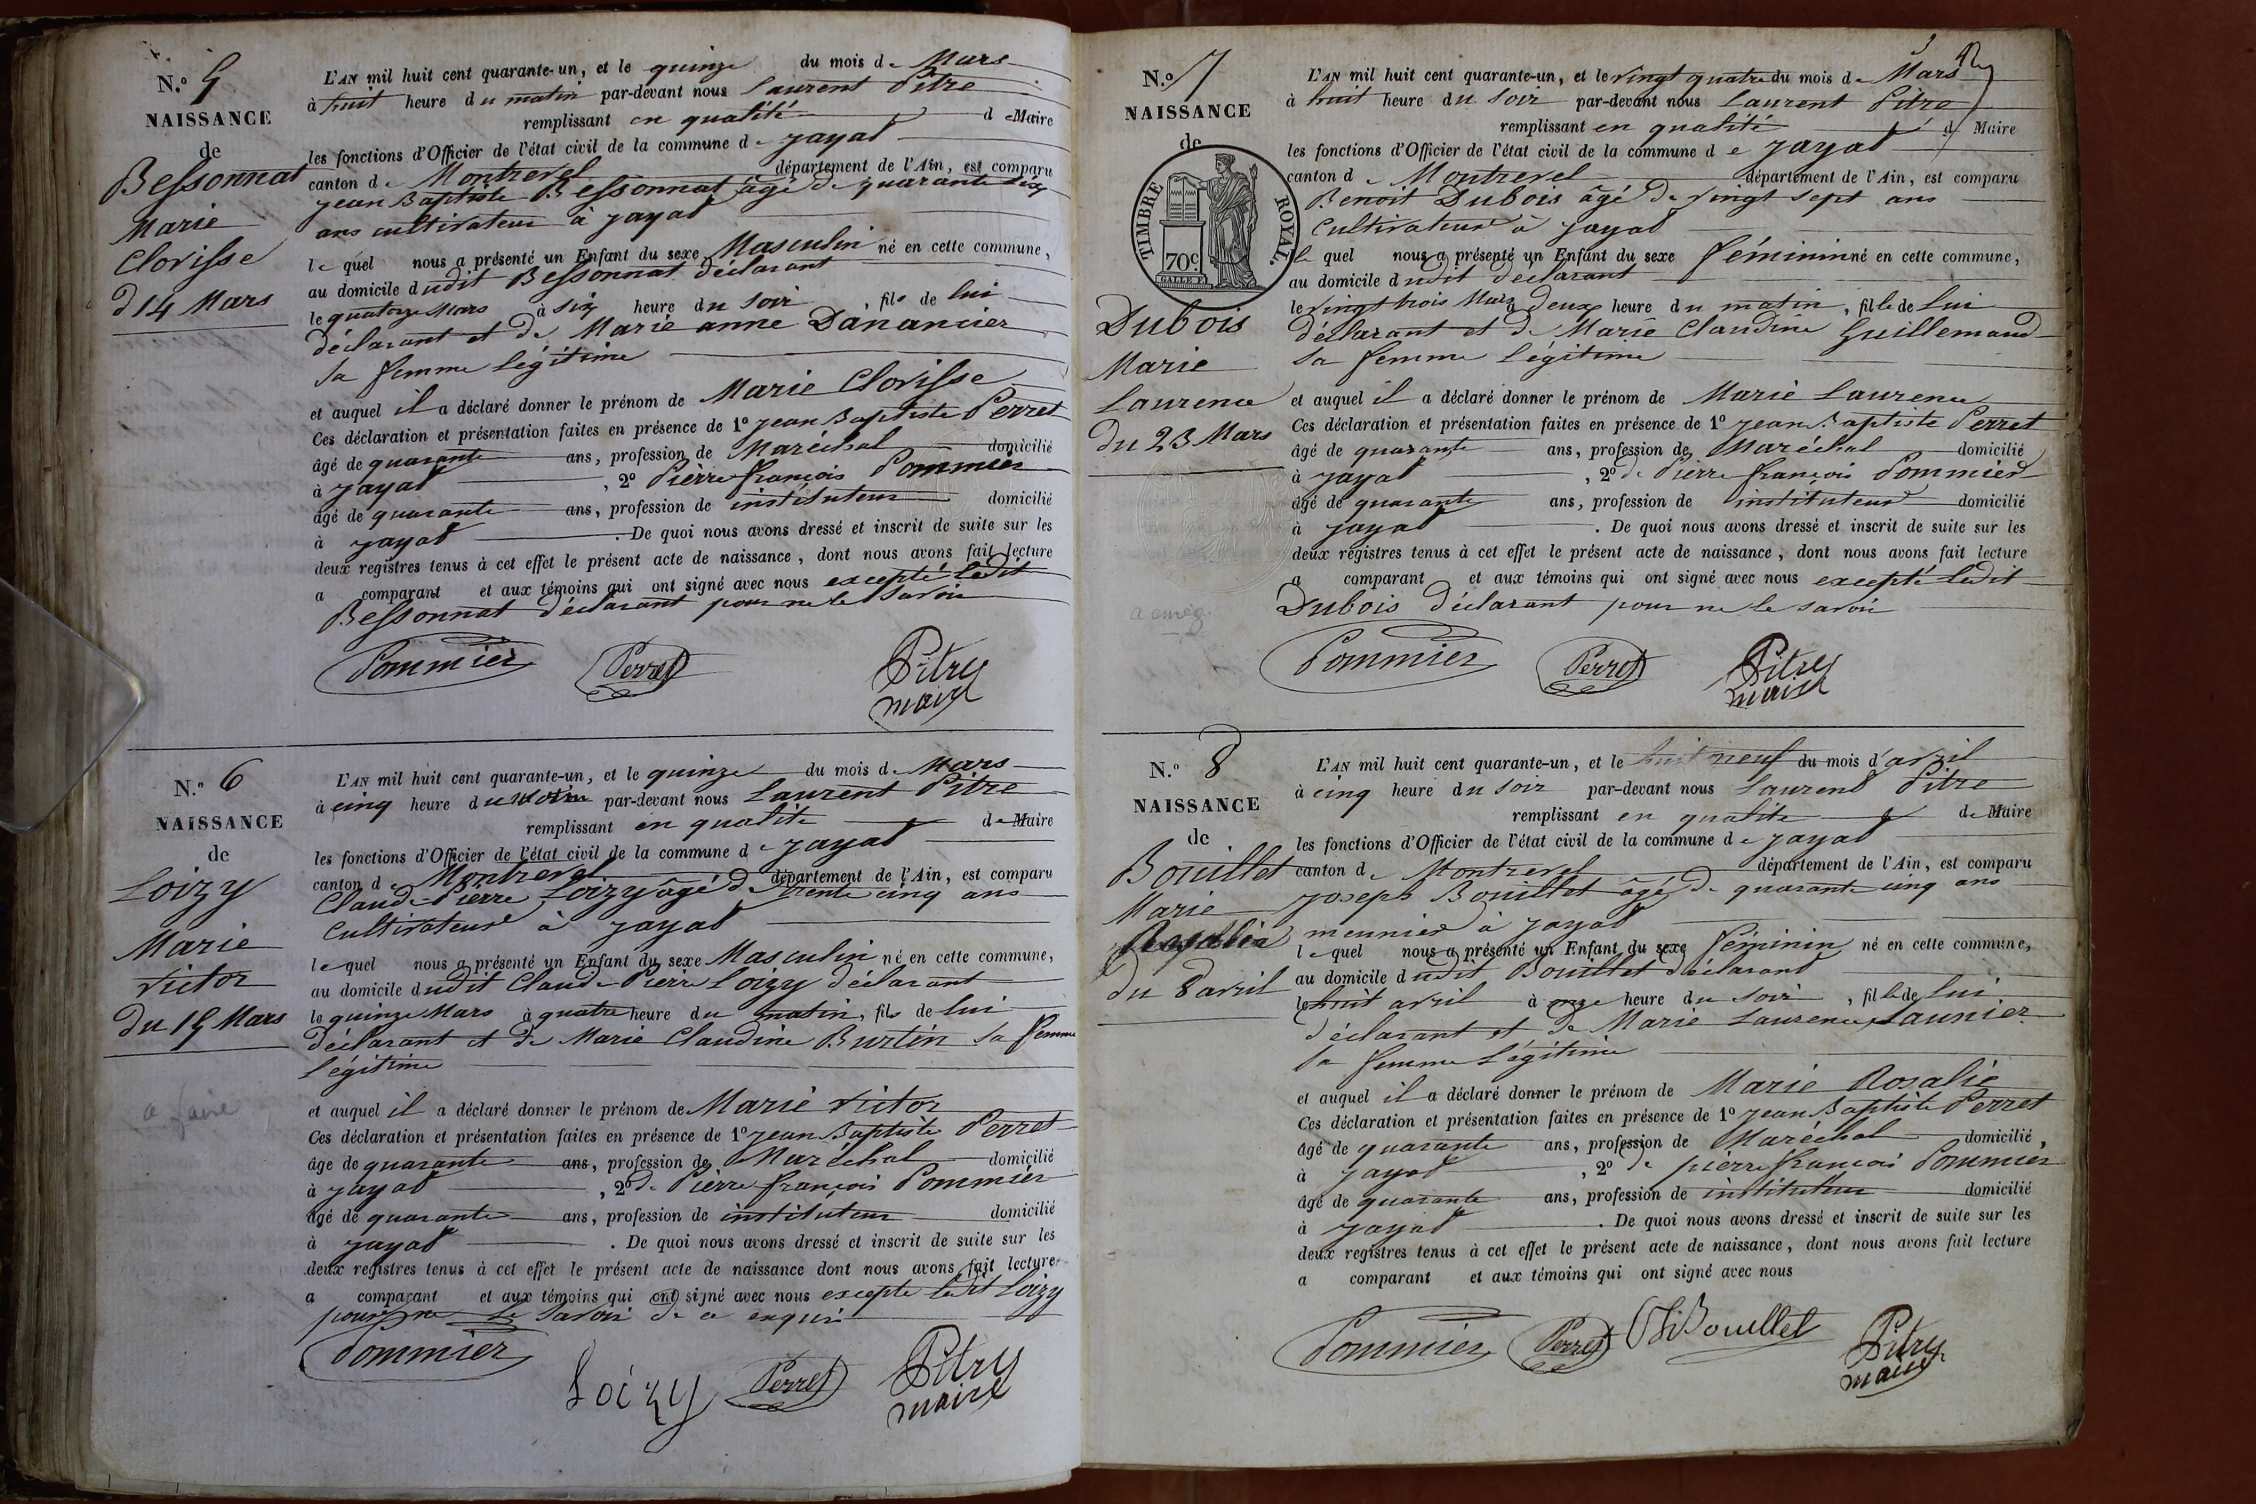 N.o 5
NAISSANCE
de
Bessonnat
Marie
Clorisse
d 14 Mars
L'AN mil huit cent quarante-un, et le quinze du mois de Mars
à huit heure du matin par-devant nous Laurent Pitre
remplissant en qualité de Maire
les fonctions d'Officier de l'état civil de la commune de jayat
canton de Montrevel département de l'Ain, est comparu
jean Baptiste Bessonnat âgé de quarante
ans cultivateur à jayat
le quel nous a présenté un Enfant du sexe Masculin né en cette commune,
au domicile dudit Bessonnat déclarant
le quatorze Mars à six heure du soir, fils de lui
déclarant et de Marie anne Danancier
sa femme légitime
et auquel il a déclaré donner le prénom de Marie Clorisse
Ces déclaration et présentation faites en présence de 1o jean Baptiste Perret
âgé de quarante ans, profession de Maréchal domicilié
à jayat, 2o Pierre françois Pommier
âgé de quarante ans, profession de instituteur domicilié
à jayat. De quoi nous avons dressé et inscrit de suite sur les
deux registres tenus à cet effet le présent acte de naissance, dont nous avons fait lecture
a comparant et aux témoins qui ont signé avec nous excepté ledit
Bessonnat déclarant pour ne le savoir
Pommier Perret Pitre
maire
N.o 6
NAISSANCE
de
Loizy
Marie
victor
du 15 Mars
a faire
L'AN mil huit cent quarante-un, et le quinze du mois de Mars
à cinq heure du soir par-devant nous Laurent Pitre
remplissant en qualité de Maire
les fonctions d'Officier de l'état civil de la commune de jayat
canton de Montrevel département de l'Ain, est comparu
Claude Pierre Loizy âgé de trente cinq ans
cultivateur à jayat
le quel nous a présenté un Enfant du sexe Masculin né en cette commune,
au domicile dudit Claude Pierre Loizy déclarant
le quinze Mars à quatre heure du matin, fils de lui
déclarant et de Marie Claudine Burtin sa femme
légitime
et auquel il a déclaré donner le prénom de Marie victor
Ces déclaration et présentation faites en présence de 1o jean Baptiste Perret
âge de quarante ans, profession de Maréchal domicilié
à jayat, 2o de Pierre françois Pommier
âgé de quarante ans, profession de instituteur domicilié
à jayat. De quoi nous avons dressé et inscrit de suite sur les
deux registres tenus à cet effet le présent acte de naissance dont nous avons fait lecture
a comparant et aux témoins qui ont signé avec nous excepté ledit Loizy
pour ne le savoir de ce enquis
Pommier Loizy Perret Pitre
maire
N.o 7
NAISSANCE
de
TIMBRE ROYAL.
70c
Dubois
Marie
Laurence
du 23 Mars
L'AN mil huit cent quarante-un, et le vingt quatre du mois de Mars
à huit heure du soir par-devant nous Laurent Pitre
remplissant en qualité de Maire
les fonctions d'Officier de l'état civil de la commune de jayat
canton de Montrevel département de l'Ain, est comparu
Benoit Dubois âgé de vingt sept ans
Cultivateur à jayat
le quel nous a présenté un Enfant du sexe féminin né en cette commune,
au domicile dudit déclarant
le vingt trois Mars à deux heure du matin, fille de lui
déclarant et de Marie Claudine Guillemaud
sa femme légitime
et auquel il a déclaré donner le prénom de Marie Laurence
Ces déclaration et présentation faites en présence de 1o jean Baptiste Perret
âgé de quarante ans, profession de Maréchal domicilié
à jayat, 2o de Pierre françois Pommier
âgé de quarante ans, profession de instituteur domicilié
à jayat. De quoi nous avons dressé et inscrit de suite sur les
deux registres tenus à cet effet le présent acte de naissance, dont nous avons fait lecture
a comparant et aux témoins qui ont signé avec nous excepté ledit
Dubois déclarant pour ne le savoir
Pommier Perret Pitre
maire
N.o 8
NAISSANCE
de
Bouillet
Marie
Rosalie
du 8 avril
L'AN mil huit cent quarante-un, et le huit neuf du mois d'avril
à cinq heure du soir par-devant nous Laurent Pitre
remplissant en qualité de Maire
les fonctions d'Officier de l'état civil de la commune de jayat
canton de Montrevel département de l'Ain, est comparu
joseph Bouillet âgé de quarante cinq ans
meunier à jayat
le quel nous a présenté un Enfant du sexe féminin né en cette commune,
au domicile dudit Bouillet déclarant
le huit avril à onze heure du soir, fille de lui
déclarant et de Marie Laurence Launier
sa femme légitime
et auquel il a déclaré donner le prénom de Marie Rosalie
Ces déclaration et présentation faites en présence de 1o jean Baptiste Perret
âgé de quarante ans, profession de Maréchal domicilié
à jayat, 2o de pierre françois Pommier
âgé de quarante ans, profession de instituteur domicilié
à jayat. De quoi nous avons dressé et inscrit de suite sur les
deux registres tenus à cet effet le présent acte de naissance, dont nous avons fait lecture
a comparant et aux témoins qui ont signé avec nous
Pommier Perret Bouillet Pitre
maire